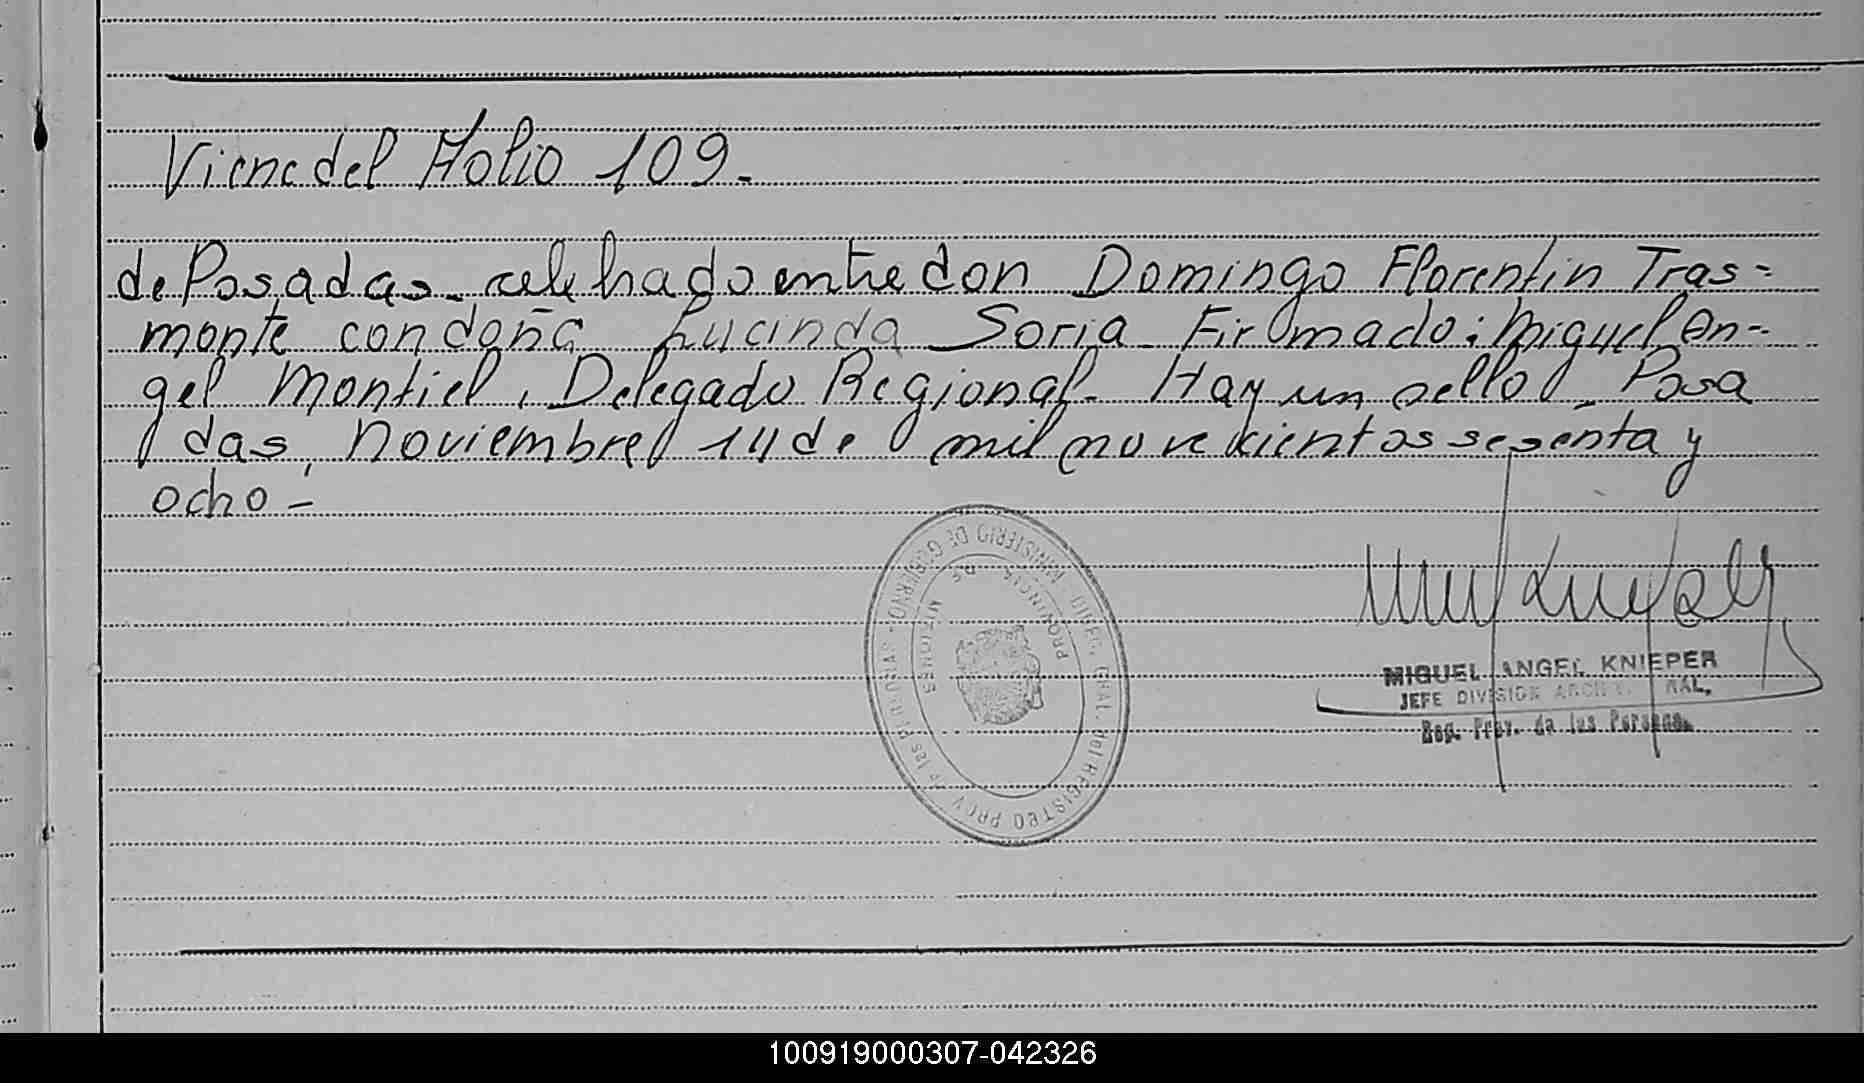 Viene del Folio 109.-
de Posadas. celebrado entre don Domingo Florentin Tras=
monte con doña Lucinda Soria. Firmado: Miguel An-
gel Montiel, Delegado Regional. Hay un sello. Posa
das, Noviembre 14 de mil novecientos sesenta y
ocho -
MINISTERIO DE GOBIERNO · DIREC. GRAL. del REGISTRO PROV. de las PERSONAS
PROVINCIA DE MISIONES
MIGUEL ANGEL KNIEPER
JEFE DIVISION ARCH. GRAL.
Reg. Prov. de las Personas
100919000307-042326